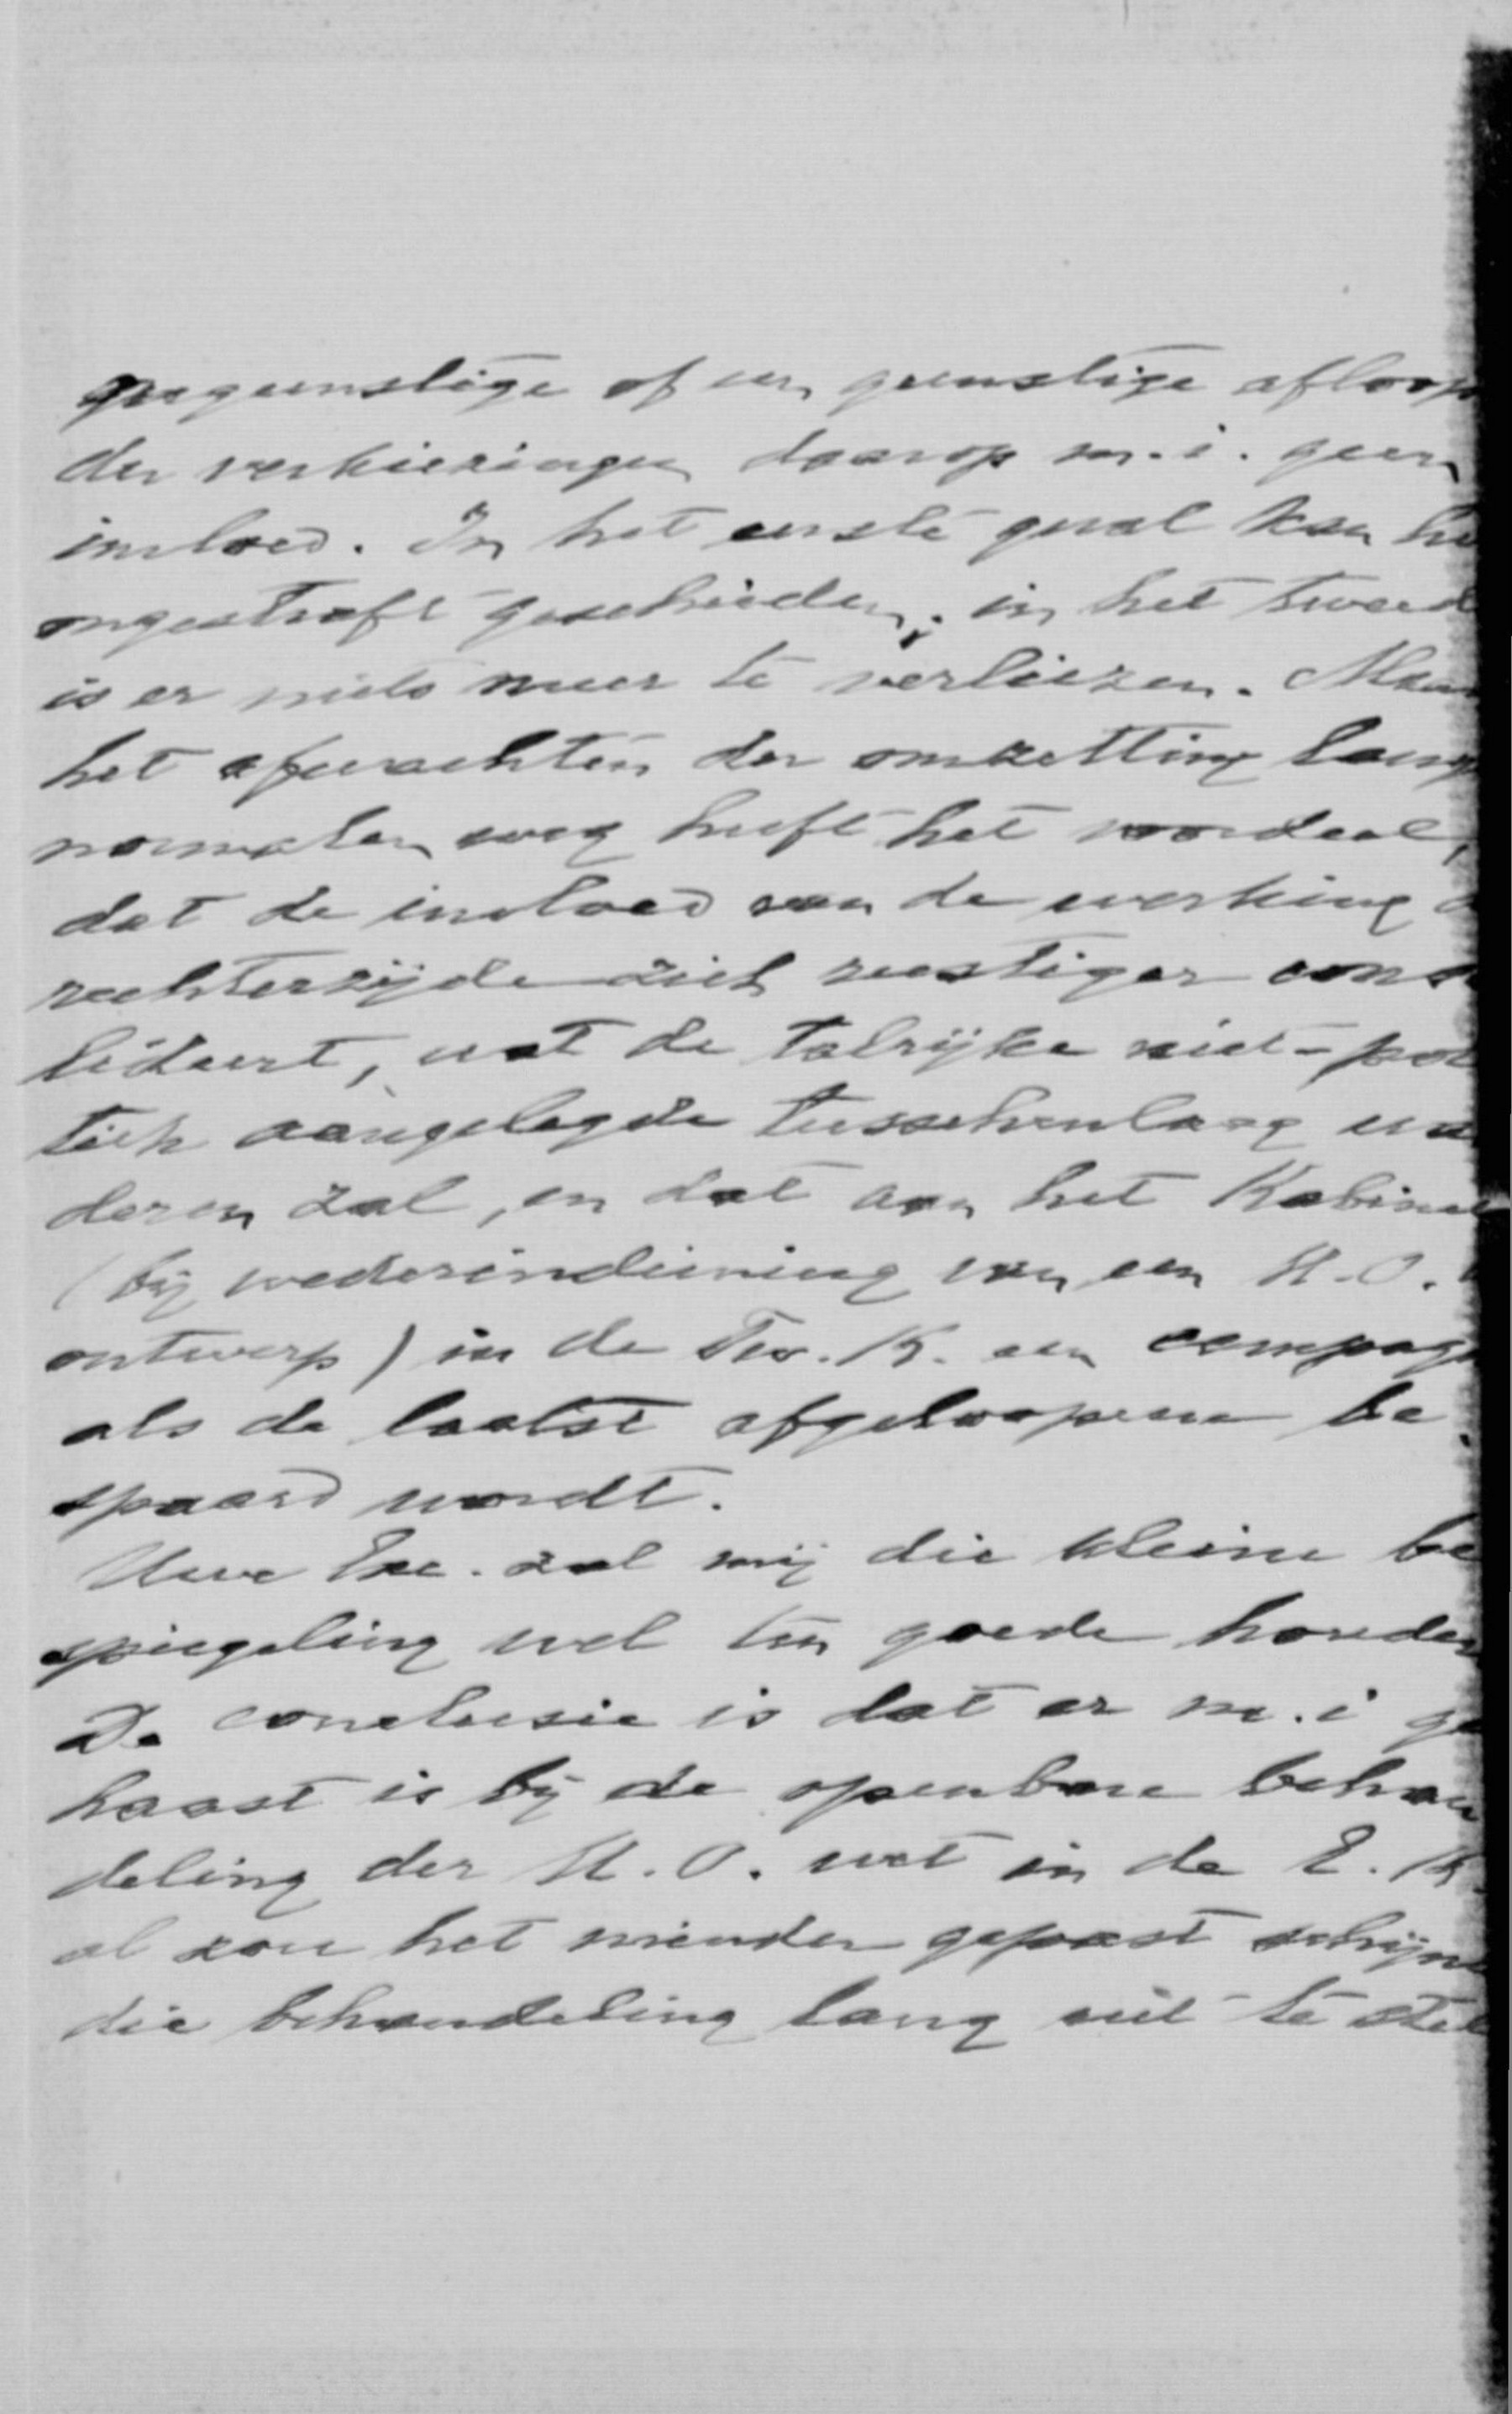 ongunstige of een gunstige afloop
der verkiezingen daarop m.i. geen
invloed. In het eerste geval kan he
ongestraft geschieden; in het tweed
is er niets meer te verliezen. Maar
het afwachten der omzetting lang
normalen weg heeft het voordeel,
dat de invloed van de werking d
rechterzijde zich rustiger conso
lideert, wat de talrijke niet-poli
tiek aangelegde tusschenlaag waa
deren zal, en dat aan het Kabinet
(bij wederindiening van een H.O.
ontwerp) in de Tw. K. een campag
als de laatst afgeloopene be
spaard wordt.
Uwe Exc. zal mij die kleine be
spiegeling wel ten goede houden
De conclusie is dat er m.i ge
haast is bij de openbare behan
deling der H.O. wet in de E. K.
al zou het minder gepast schijne
die behandeling lang uit te stel